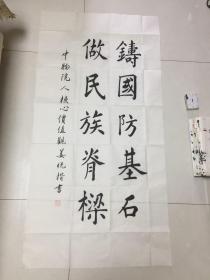 鑄國防基石
做民族脊樑
中物院人核心價值觀姜悦楷書